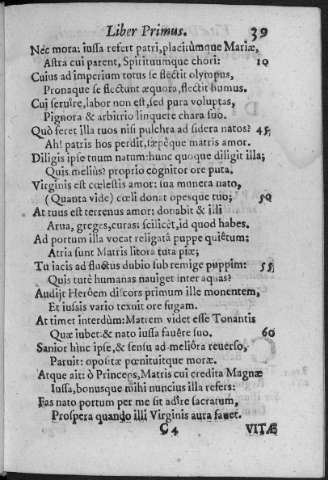 Liber Primus. 39
Nec mora: iussa refert patri, placitùmque Mariæ,
Astra cui parent, Spirituumque chori: 10
Cuius ad imperium totus se flectit olympus,
Pronaque se flectunt æquora, flectit humus.
Cui seruire, labor non est, sed pura voluptas,
Pignora & arbitrio linquere chara suo.
Quò feret illa tuos nisi pulchra ad sidera natos? 45
Ah! patris hos perdit, sæpèque matris amor.
Diligis ipse tuum natum: hunc quoque diligit illa;
Quis melius? proprio cognitor ore puta.
Virginis est cœlestis amor: sua munera nato,
(Quanta vide) cœli donat opesque tuo; 50
At tuus est terrenus amor: donabit & illi
Arua, greges, curas: scilicèt, id quod habes.
Ad portum illa vocat religatâ puppe quiêtum:
Atria sunt Matris litora tuta piæ;
Tu iacis ad fluctus dubio sub remige puppim: 55
Quis tutè humanas nauiget inter aquas?
Audijt Herôem discors primum ille monentem,
Et iussis vario texuit ore fugam.
At timet interdùm: Matrem videt esse Tonantis
Quæ iubet & nato iussa fauêre suo. 60
Sanior hinc ipse, & sensu ad meliôra reuerso,
Paruit: oportæ pœnituitque moræ.
Atque ait: ò Princeps, Matris cui credita Magnæ
Iussa, bonusque mihi nuncius illa refers:
Fas nato portum per me sit adîre sacratum,
Prospera quando illi Virginis aura fauet.
C 4 VITÆ